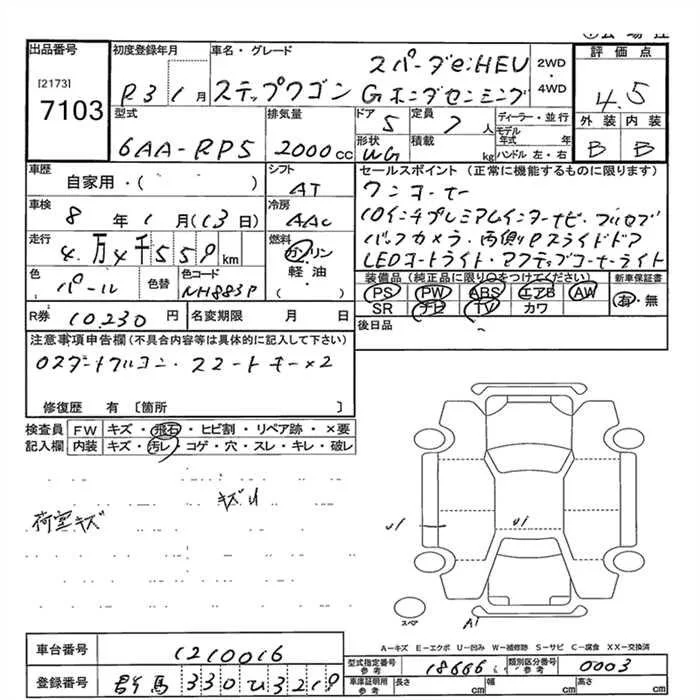 出品番号 初度登録年月 車名・グレード 評価点
[2173] スパーダe:HEV 2WD
7103 R3 1月 ステップワゴン Gホンダセンシング ・4WD 4.5
型式 排気量 ドア 5 定員 7人 ディーラー・並行 外装 内装
モデル年式 年
6AA-RP5 2000cc 形状 WG 積載 kg ハンドル 左・右 B B
車歴 シフト セールスポイント(正常に機能するものに限ります)
自家用・( ) AT ワンオーナー
車検 冷房 10インチプレミアムインターナビ・フルセグ
8年1月(13日) AAC バックカメラ・両側Pスライドドア
走行 燃料 LEDオートライト・アダプティブオーナーライト
4万4千559km ガソリン 装備品(純正品に限り○をつけてください) 新車保証書
色 色替 色コード 軽油 PS PW ABS エアB AW 有・無
パール NH883P ( ) SR ナビ TV カワ
R券 10,230円 名変期限 月 日 後日品
注意事項申告欄(不具合内容等は具体的に記入して下さい)
○スマートキー×2
修復歴 有〔箇所 〕
検査員 FW キズ・飛石・ヒビ割・リペア跡・×要
記入欄 内装 キズ・汚レ・コゲ・穴・スレ・キレ・破レ
キズU
荷室キズ
U1 U1
スペア A1
A-キズ E-エクボ U-凹み W-補修跡 S-サビ C-腐食 XX-交換済
車台番号 1210016
型式指定番号 参考 18666 類別区分番号 参考 0003
登録番号 群馬 330ひ3219
車庫証明用 参考 長さ cm 幅 cm 高さ cm